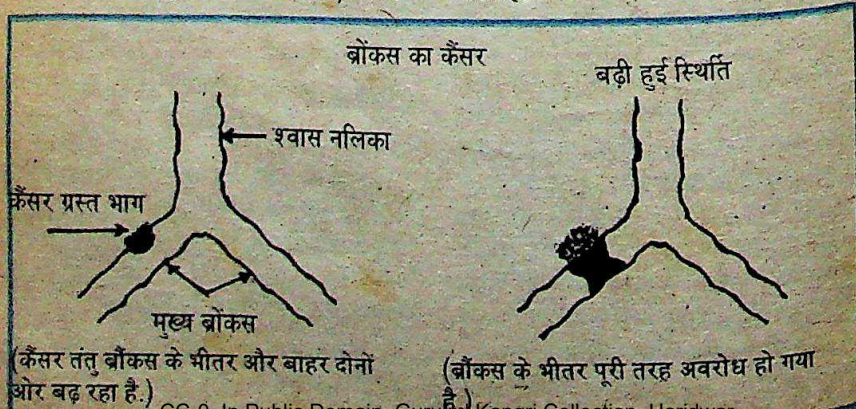 ब्रोंकस का कैंसर
बढ़ी हुई स्थिर्ति
श्वास नलिका
कैंसर ग्रस्त भाग
मुख्य ब्रोंकस
(कैंसर तंतु ब्रौंकस के भीतर और बाहर दोनों
ओर बढ़ रहा है.)
(ब्रौंकस के भीतर पूरी तरह अवरोध हो गया
है.)
CC-0. In Public Domain. Gurukul Kangri Collection, Haridwar